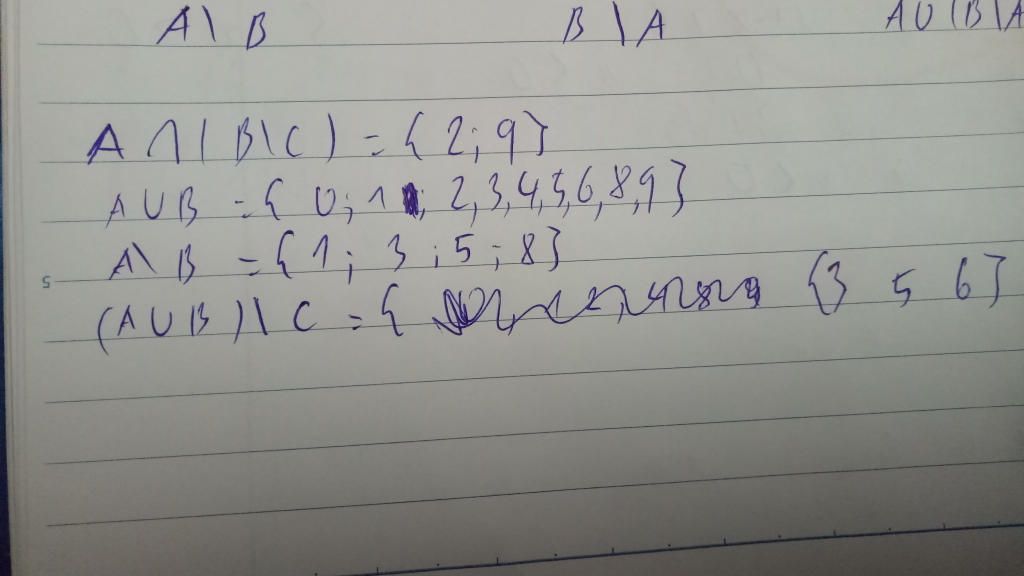 A \ B B \ A A ∪ (B \ A
A ∩ ( B \ C ) = { 2 ; 9 }
A ∪ B = { 0 ; 1 ; 2,3,4,5,6,8,9 }
A \ B = { 1 ; 3 ; 5 ; 8 }
5
(A ∪ B) \ C = { {3 5 6 }